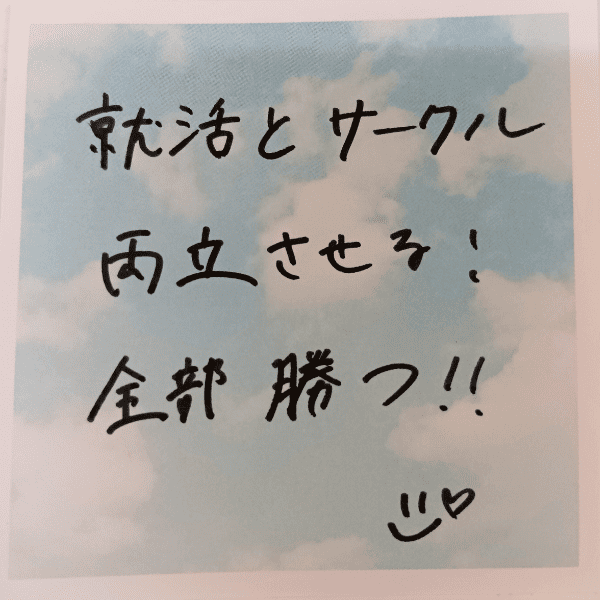 就活とサークル
両立させる!
全部 勝つ!!